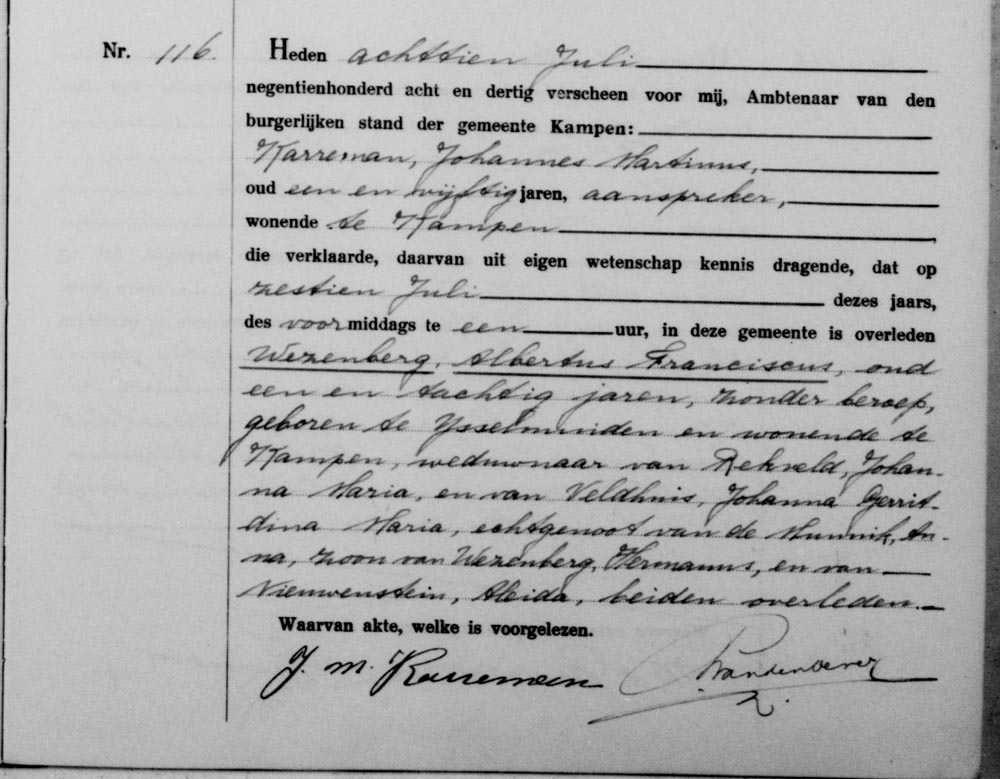 Nr. 116. Heden achttien Juli
negentienhonderd acht en dertig verscheen voor mij, Ambtenaar van den
burgerlijken stand der gemeente Kampen:
Karreman, Johannes Martinus,
oud een en vijftig jaren, aanspreker,
wonende te Kampen
die verklaarde, daarvan uit eigen wetenschap kennis dragende, dat op
zestien Juli dezes jaars,
des voormiddags te een uur, in deze gemeente is overleden
Wezenberg, Albertus Franciscus, oud
een en tachtig jaren, zonder beroep,
geboren te Ysselmuiden en wonende te
Kampen, weduwnaar van Rekveld, Johan-
na Maria, en van Veldhuis, Johanna Gerrit-
dina Maria, echtgenoot van de Munnik, An-
na, zoon van Wezenberg, Hermannus, en van
Nieuwenstein, Aleida, beiden overleden.
Waarvan akte, welke is voorgelezen.
J. M. Karreman